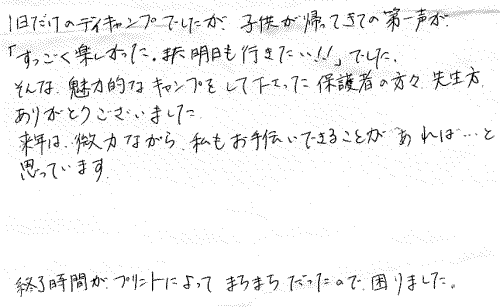 1日だけのデイキャンプでしたが、子供が帰ってきての第一声が、
「すっごく楽しかった。また明日も行きたい!!」でした。
そんな、魅力的なキャンプをして下さった保護者の方々、先生方、
ありがとうございました。
来年は、微力ながら、私もお手伝いできることがあれば…と
思っています。
終了時間が、プリントによって まちまちだったので、困りました。